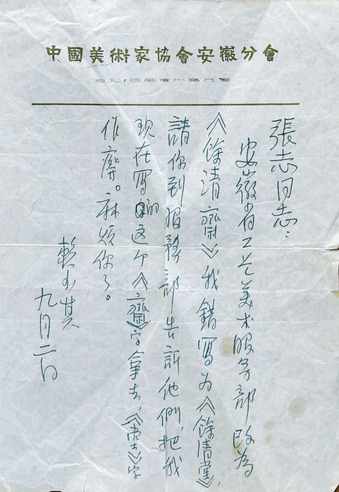 中國美術家協會安徽分會
張志同志：
安徽省工艺美术服务部 改為
《餘清齋》我錯寫为《餘清堂》，
請你到服務部告訴他們把我
现在写的这个《齋》字拿去，《堂》字
作廢。麻烦你了。
賴少其
九月二日